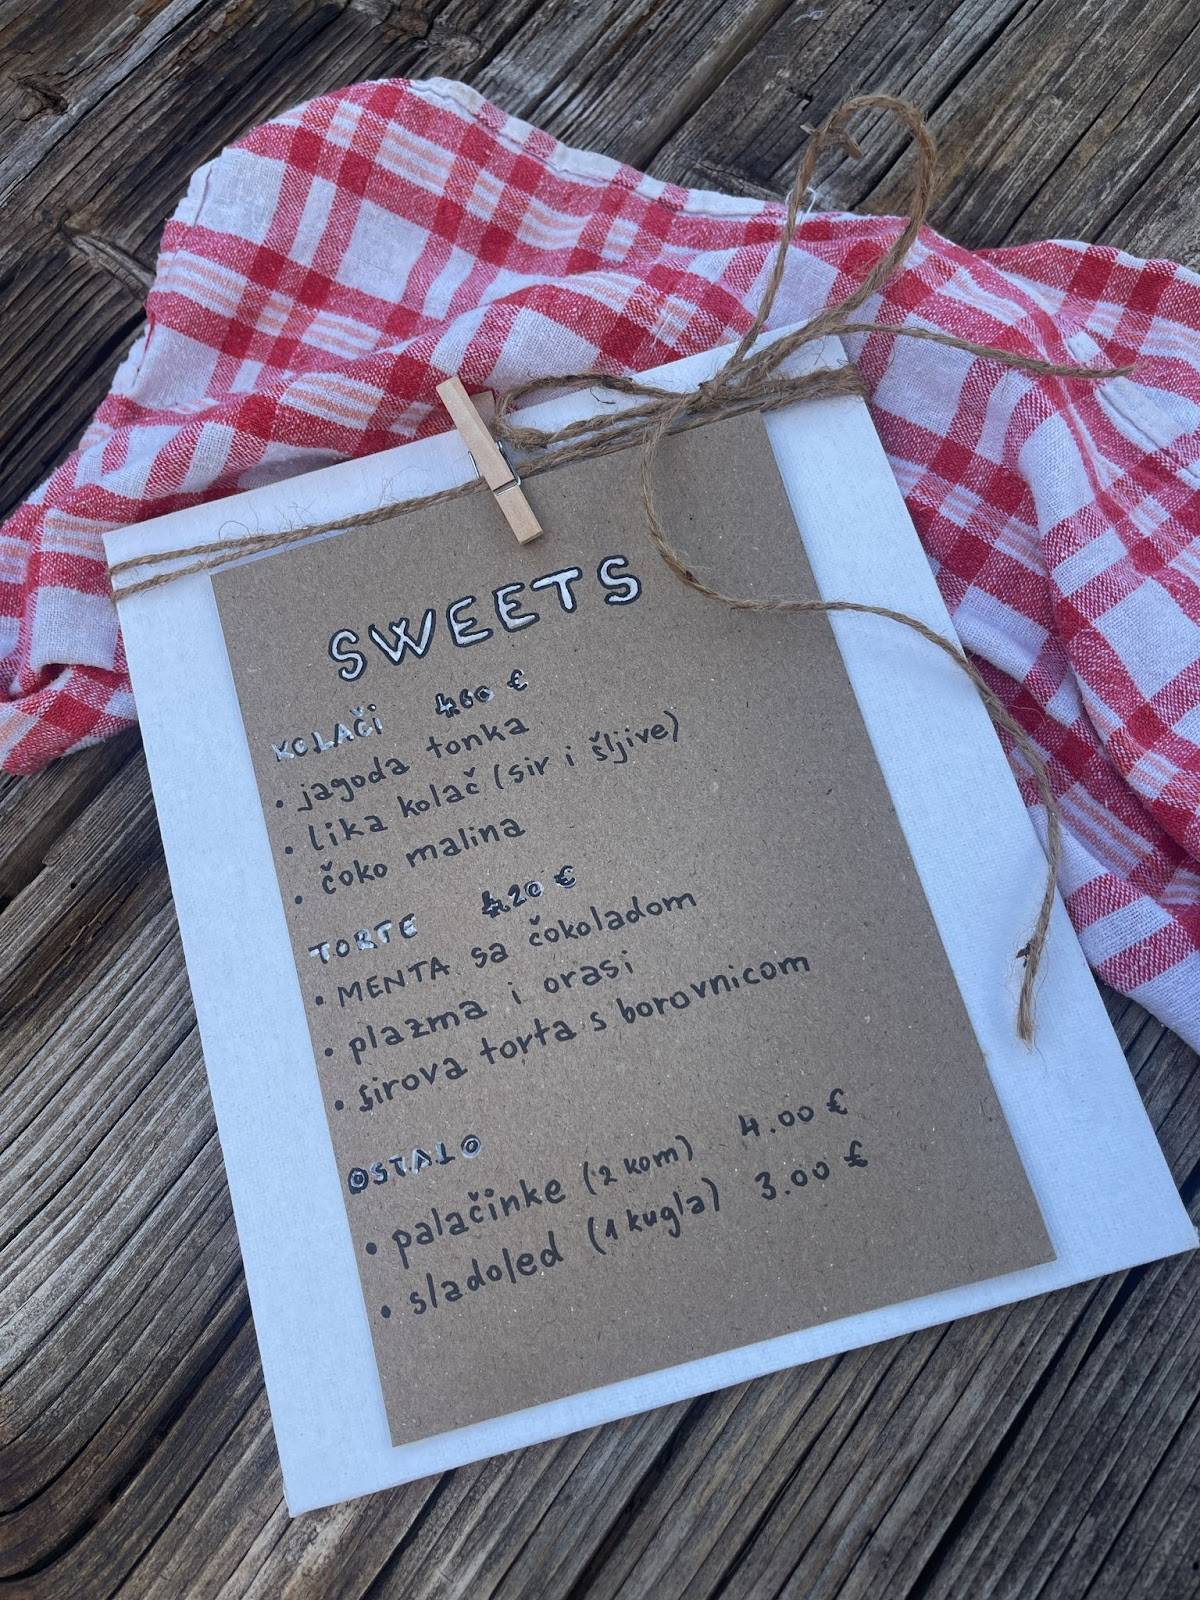 SWEETS
KOLAČI 4.60 €
• jagoda tonka
• lika kolač (sir i šljive)
• čoko malina
TORTE 4.20 €
• MENTA sa čokoladom
• plazma i orasi
• sirova torta s borovnicom
OSTALO
• palačinke (2 kom) 4.00 €
• sladoled (1 kugla) 3.00 €